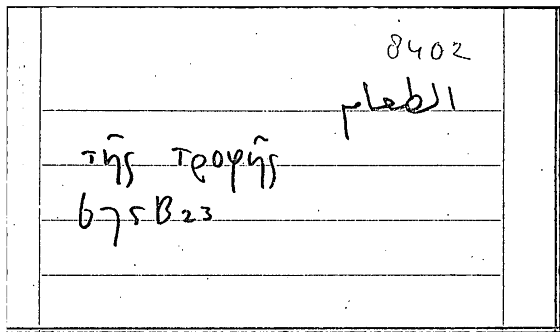 8402
الطعام
τῆς τροφῆς
675B23